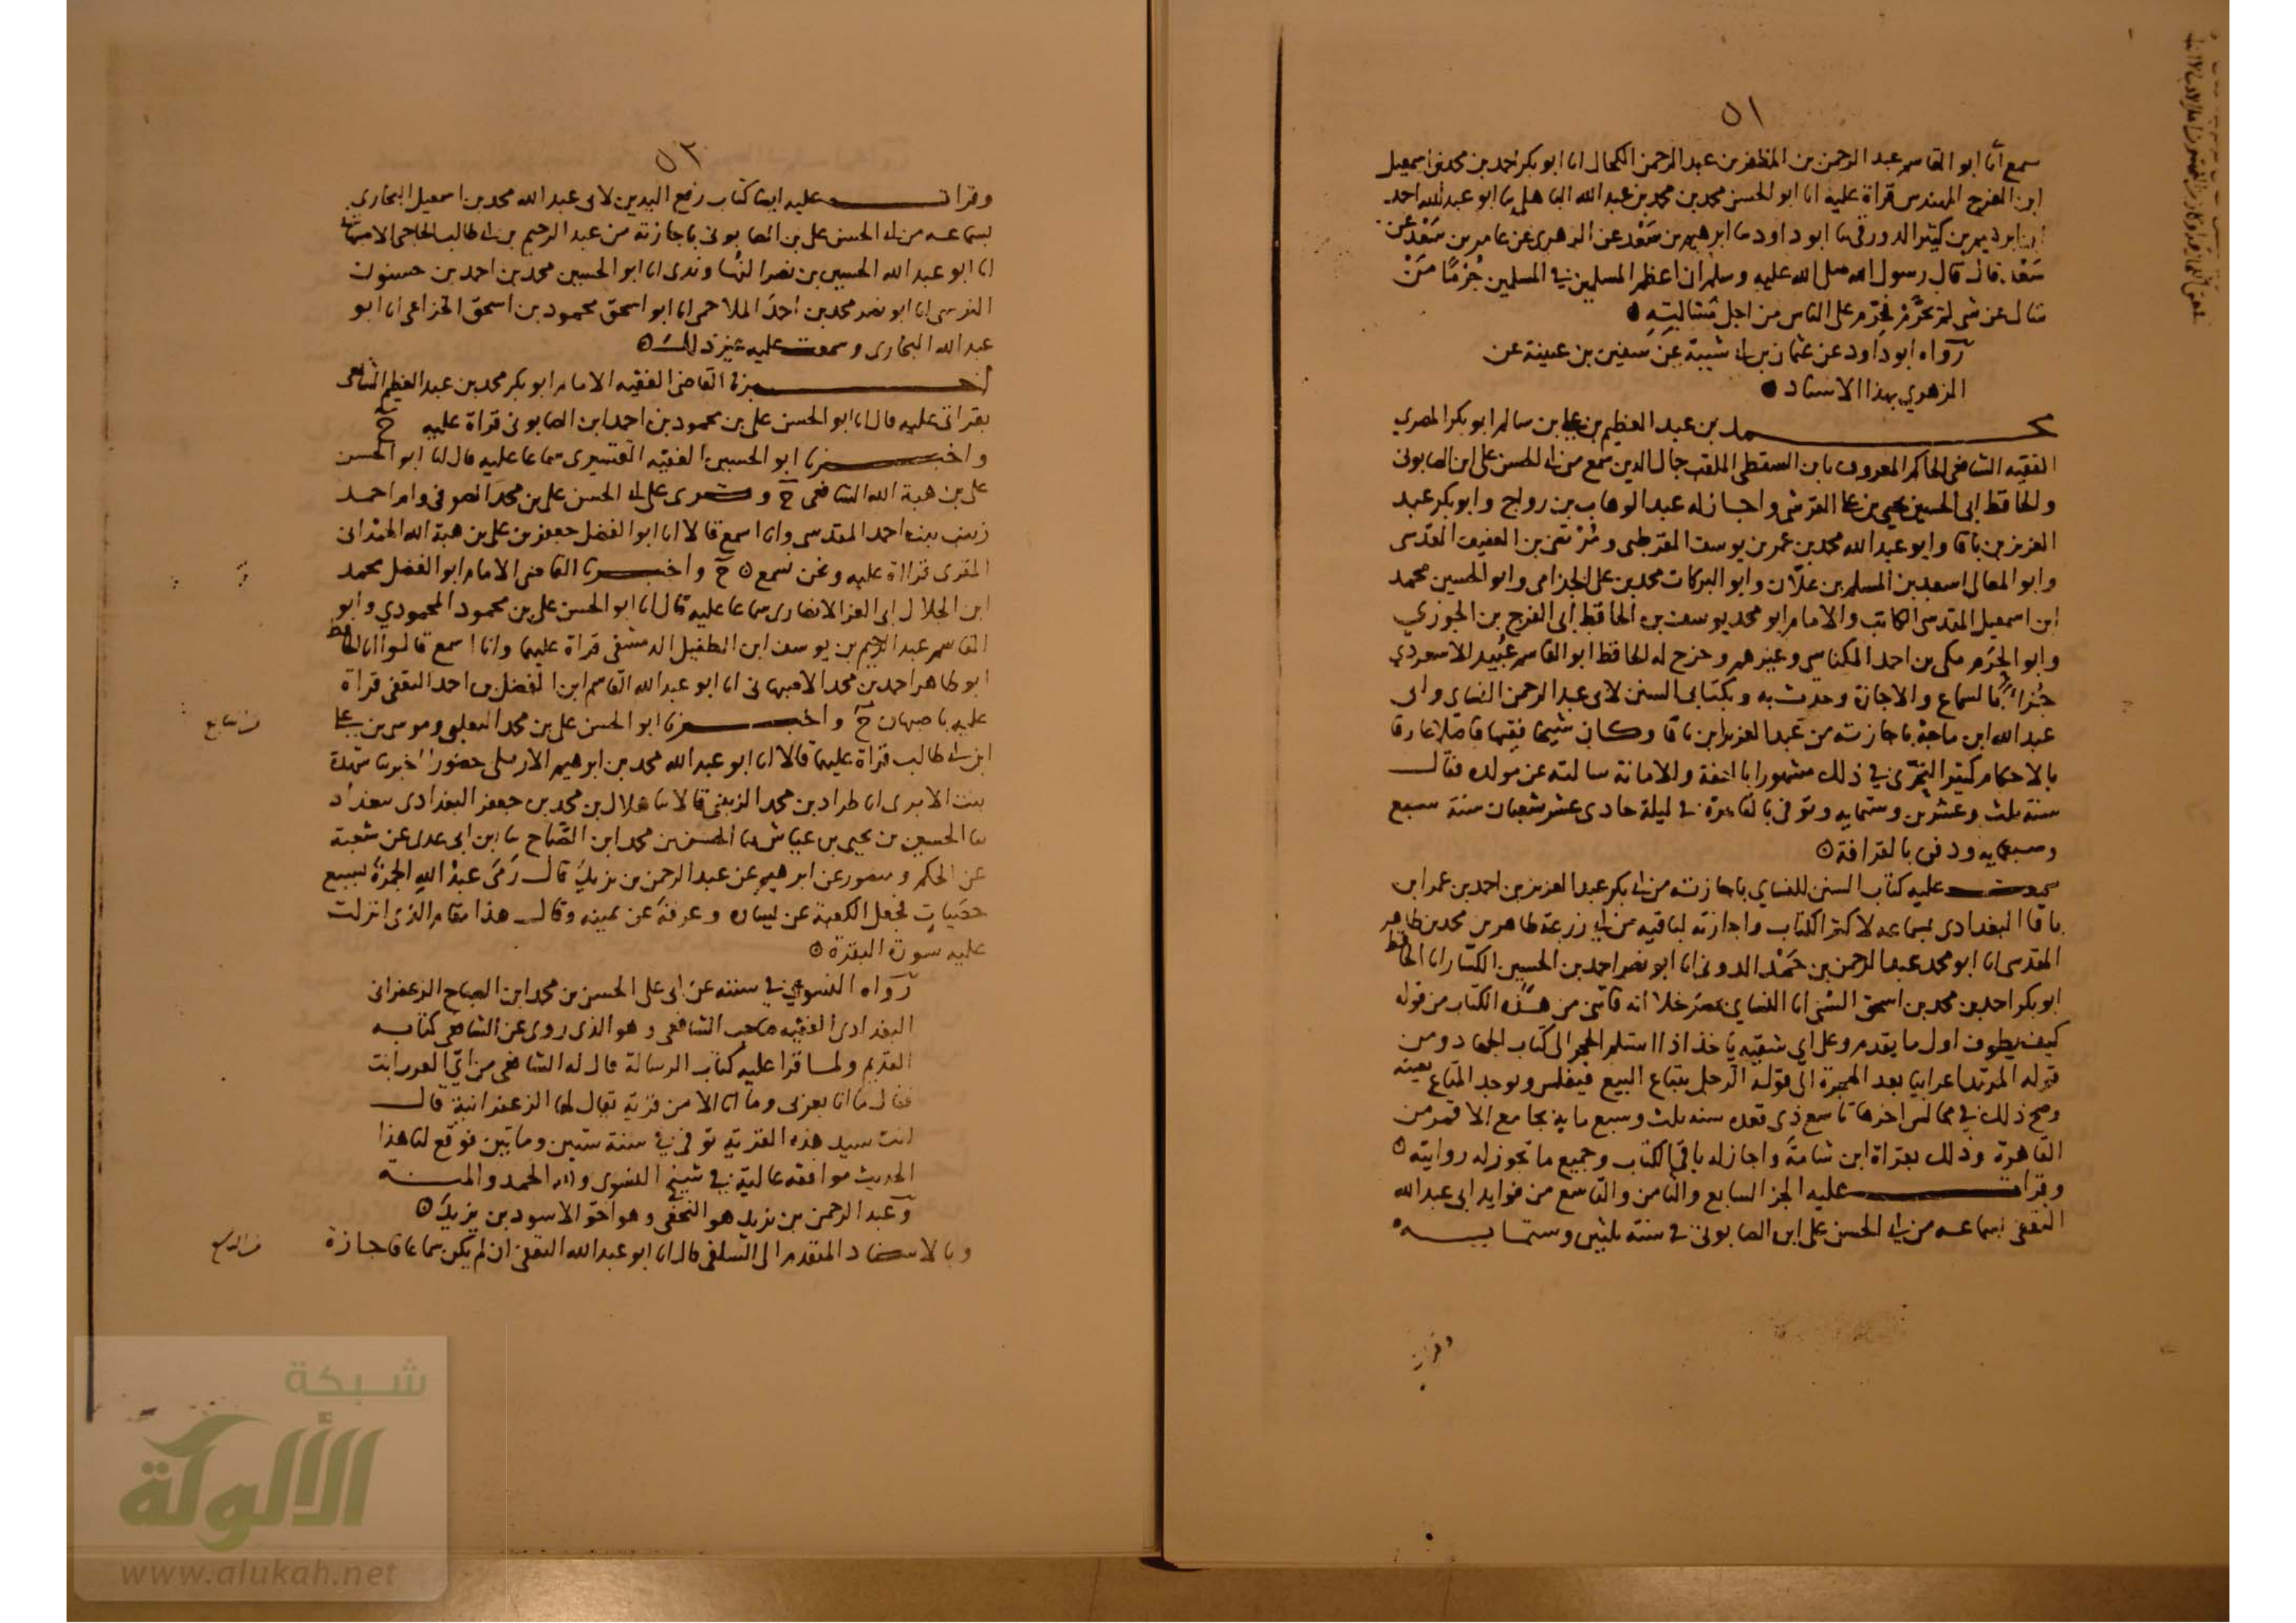 ٥١
سمع أنا ابو القاسم عبد الرحمن بن المظفر بن عبد الرحمن الكحال انا ابو بكر احمد بن محمد بن اسمعيل
ابن الفرج المهندس قراة عليه انا ابو الحسن محمد بن محمد بن عبد الله الباهلي نا ابو عبد الله احمد
ابن ابرهيم بن كثير الدورقي نا ابو داود نا ابرهيم بن سَعْد عن الزهري عن عامر بن سَعْد عن
سَعْد قال قال رسول الله صلى الله عليه وسلم ان اعظم المسلمين في المسلمين جُرْمًا مَنْ
سال عن شي لم يحرَّمْ فحُرّم على الناس من اجل مسَالَتِهِ
رَواه ابو داود عن عثمان بن ابي شيبة عن سفين بن عيينة عن
الزهري بهذا الاسناد
محمد بن عبد العظيم بن علي بن سالم ابو بكر المصري
الفقيه الشافعي الحاكم المعروف بابن السقطي الملقب جمال الدين سمع من ابي الحسن علي ابن الصابوني
والحافظ ابي الحسين يحيى بن علي القرشي واجاز له عبد الوهاب بن رواج وابو بكر عبد
العزيز بن باقا وابو عبد الله محمد بن عمر بن يوسف القرطبي ومُرْتضى بن العفيف المقدسي
وابو المعالي اسعد بن المسلم بن علّان وابو البركات محمد بن علي الجذامي وابو الحسين محمد
ابن اسمعيل المقدسي الكاتب والامام ابو محمد يوسف بن الحافظ ابي الفرج بن الجوزي
وابو الحَرَم مكي بن احمد المكناسي وغيرهم وخرج له الحافظ ابو القاسم عُبَيد الاسعردي
جُزءًا بالسماع والاجازة وحدث به وبكتابي السنن لابي عبد الرحمن النساي ولابي
عبد الله ابن ماجة باجازته من عبد العزيز ابن باقا وكان شيخا فقيها فاضلا عارفا
بالاحكام كثير التحَرّي في ذلك مشهورا بالعفة والامانة سالته عن مولده فقال
سنة ثلث وعشرين وستمايه وتوفي بالقاهرة في ليلة حادي عشر شعبان سنة سبع
وسبعمايه ودفن بالقرافة
سمعت عليه كتاب السنن للنساي باجازته من ابي بكر عبد العزيز بن احمد بن عمر ابن
باقا البغدادي بسماعه لاكثر الكتاب واجازته لباقيه من ابي زرعة طاهر بن محمد بن طاهر
المقدسي انا ابو محمد عبد الرحمن بن حَمْد الدوني انا ابو نصر احمد بن الحسين الكسّار انا الحافظ
ابو بكر احمد بن محمد بن اسحق السُّني انا النساي بمصر خلا انه فاتني من هذه الكتاب من قوله
كيف يطوف اول ما يقدم وعلى اي شقيه ياخذ اذا استلم الحجر الى كتاب الجهاد ومن
قوله المرتد اعرابيا بعد الهجرة الى قوله الرجل يبتاع البيع فيفلس ويوجد المتاع بعينه
وصح ذلك في مجالس اخرها تاسع ذي قعده سنه ثلث وسبع مايه بجامع الاقمر من
القاهرة وذلك بقراة ابن شامة واجاز له باقي الكتاب وجميع ما تجوز له روايته
وقرات عليه الجز السابع والثامن والتاسع من فوايد ابي عبد الله
الثقفي بسماعه من ابي الحسن علي ابن الصابوني في سنة ثلثين وستمايه
وقرات
٥٢
وقرات عليه ايضا كتاب رفع اليدين لابي عبد الله محمد بن اسمعيل البخاري
بسماعه من ابي الحسن علي بن الصابوني باجازته من عبد الرحيم بن ابي طالب الحاجي الاصبهاني
انا ابو عبد الله الحسين بن نصر النهاوندي انا ابو الحسين محمد بن احمد بن حسنون
النرسي انا ابو نصر محمد بن احمَد الملاحمي انا ابو اسحق محمود بن اسحق الخزاعي انا ابو
عبد الله البخاري وسمعت عليه غير ذلك
اخبرنا القاضي الفقيه الامام ابو بكر محمد بن عبد العظيم الشافعي
بقراتي عليه قال انا ابو الحسن علي بن محمود بن احمد ابن الصابوني قراة عليه ح
واخبرنا ابو الحسين الفقيه القشيري سماعا عليه قال انا ابو الحسن
علي بن هبة الله الشافعي ح وقرى على ابي الحسن علي بن محمد الصوفي وام احمد
زينب بنت احمد المقدسي وانا اسمع قالا انا ابو الفضل جعفر بن علي بن هبة الله الهمْداني
المقرى قراة عليه ونحن نسمع ح واخبرنا القاضي الامام ابو الفضل محمد
ابن الجلال ابي العز الانصاري سماعا عليه قال انا ابو الحسن علي بن محمود المحمودي وابو
القاسم عبد الرحيم بن يوسف ابن الطفيل الدمشقي قراة عليهما وانا اسمع قالوا انا الحافظ
ابو طاهر احمد بن محمد الاصبهاني انا ابو عبد الله القاسم ابن الفضل بن احمد الثقفي قراة
عليه باصبهان ح واخبرنا ابو الحسن علي بن محمد الثعلبي وموسى بن علي
ابن ابي طالب قراة عليهما قالا انا ابو عبد الله محمد بن ابرهيم الاربلي حضورا اخبرتنا شهدة
بنت الابري انا طراد بن محمد الزينبي قالا نا هلال بن محمد بن جعفر البغدادي ببغداد
نا الحسين بن يحيى بن عياش نا الحسن بن محمد ابن الصَّباح نا ابن ابي عدي عن شعبة
عن الحكم ومنصور عن ابرهيم عن عبد الرحمن بن يزيد قال رَمَى عبدُ الله الجمرةَ بسبع
حصَياتٍ فجعل الكعبة عن يساره وعرفةَ عن يمينه وقال هذا مقام الذي انزلت
عليه سورة البقرة
رَواه النسوي في سننه عن ابي علي الحسن بن محمد ابن الصباح الزعفراني
البغدادي الفقيه صاحب الشافعي وهو الذي روى عن الشافعي كتابه
القديم ولما قرا عليه كتاب الرسالة قال له الشافعي من ايّ العرب انت
فقال ما انا بعربي وما انا الا من قرية يقال لها الزعفرانية قال
انت سيد هذه القرية توفي في سنة ستين وماتين فوقع لنا هذا
الحديث موافقة عالية في شيخ النسوي ولله الحمد والمنة
وَعبد الرحمن بن يزيد هو النخعي وهو اخو الاسود بن يزيدَ
وبالاسناد المتقدم الى السلفي قال انا ابو عبد الله الثقفي ان لم يكن سماعا فاجازة
شبكة
الألوكة
www.alukah.net